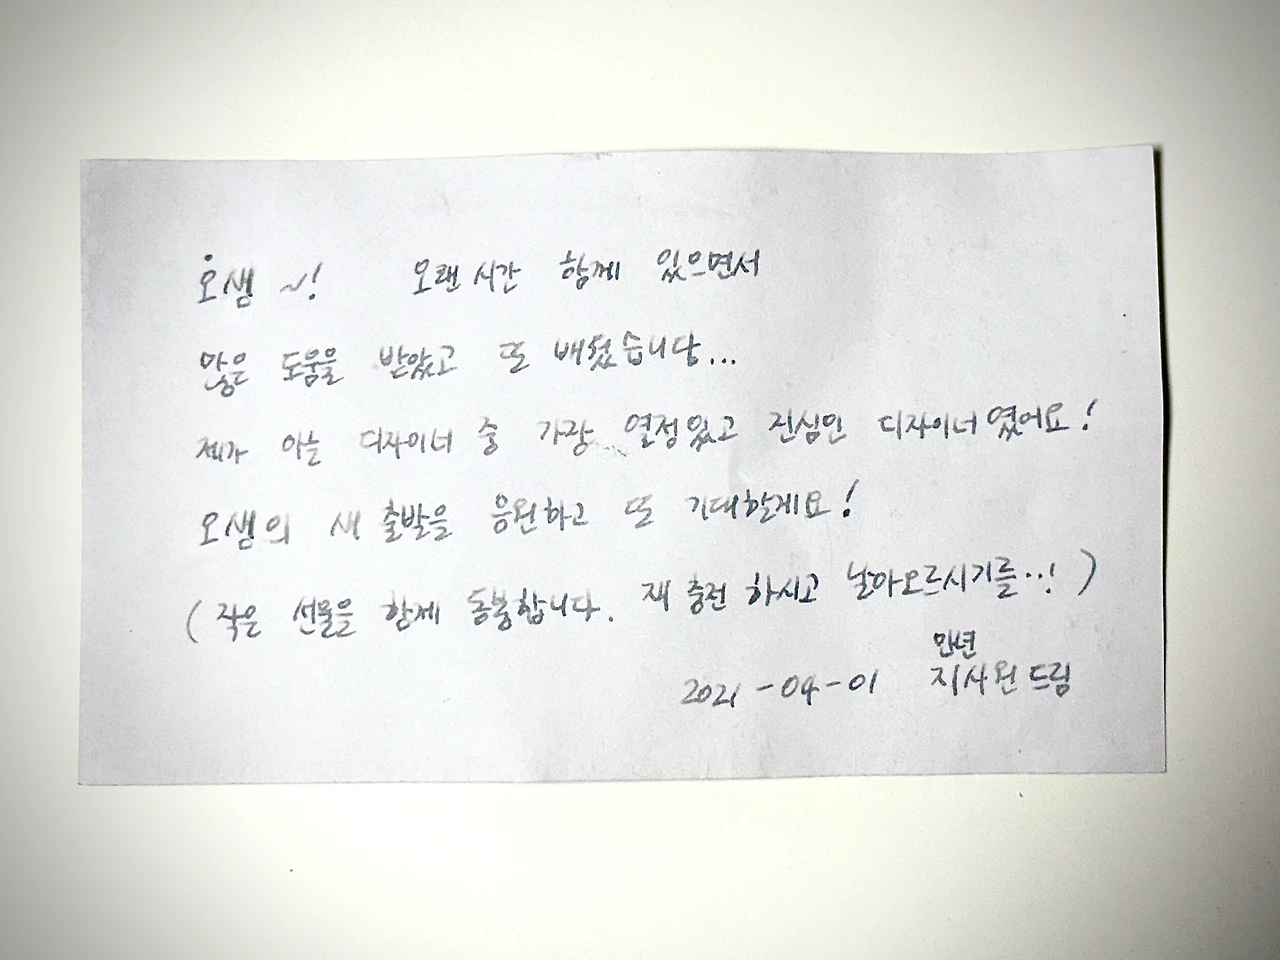 오샘~! 오랜 시간 함께 있으면서
많은 도움을 받았고 또 배웠습니다...
제가 아는 디자이너 중 가장 열정있고 진심인 디자이너였어요!
오샘의 새 출발을 응원하고 또 기대할게요!
(작은 선물을 함께 동봉합니다. 재 충전 하시고 날아오르시기를...! )
만년
2021-04-01 지사원 드림